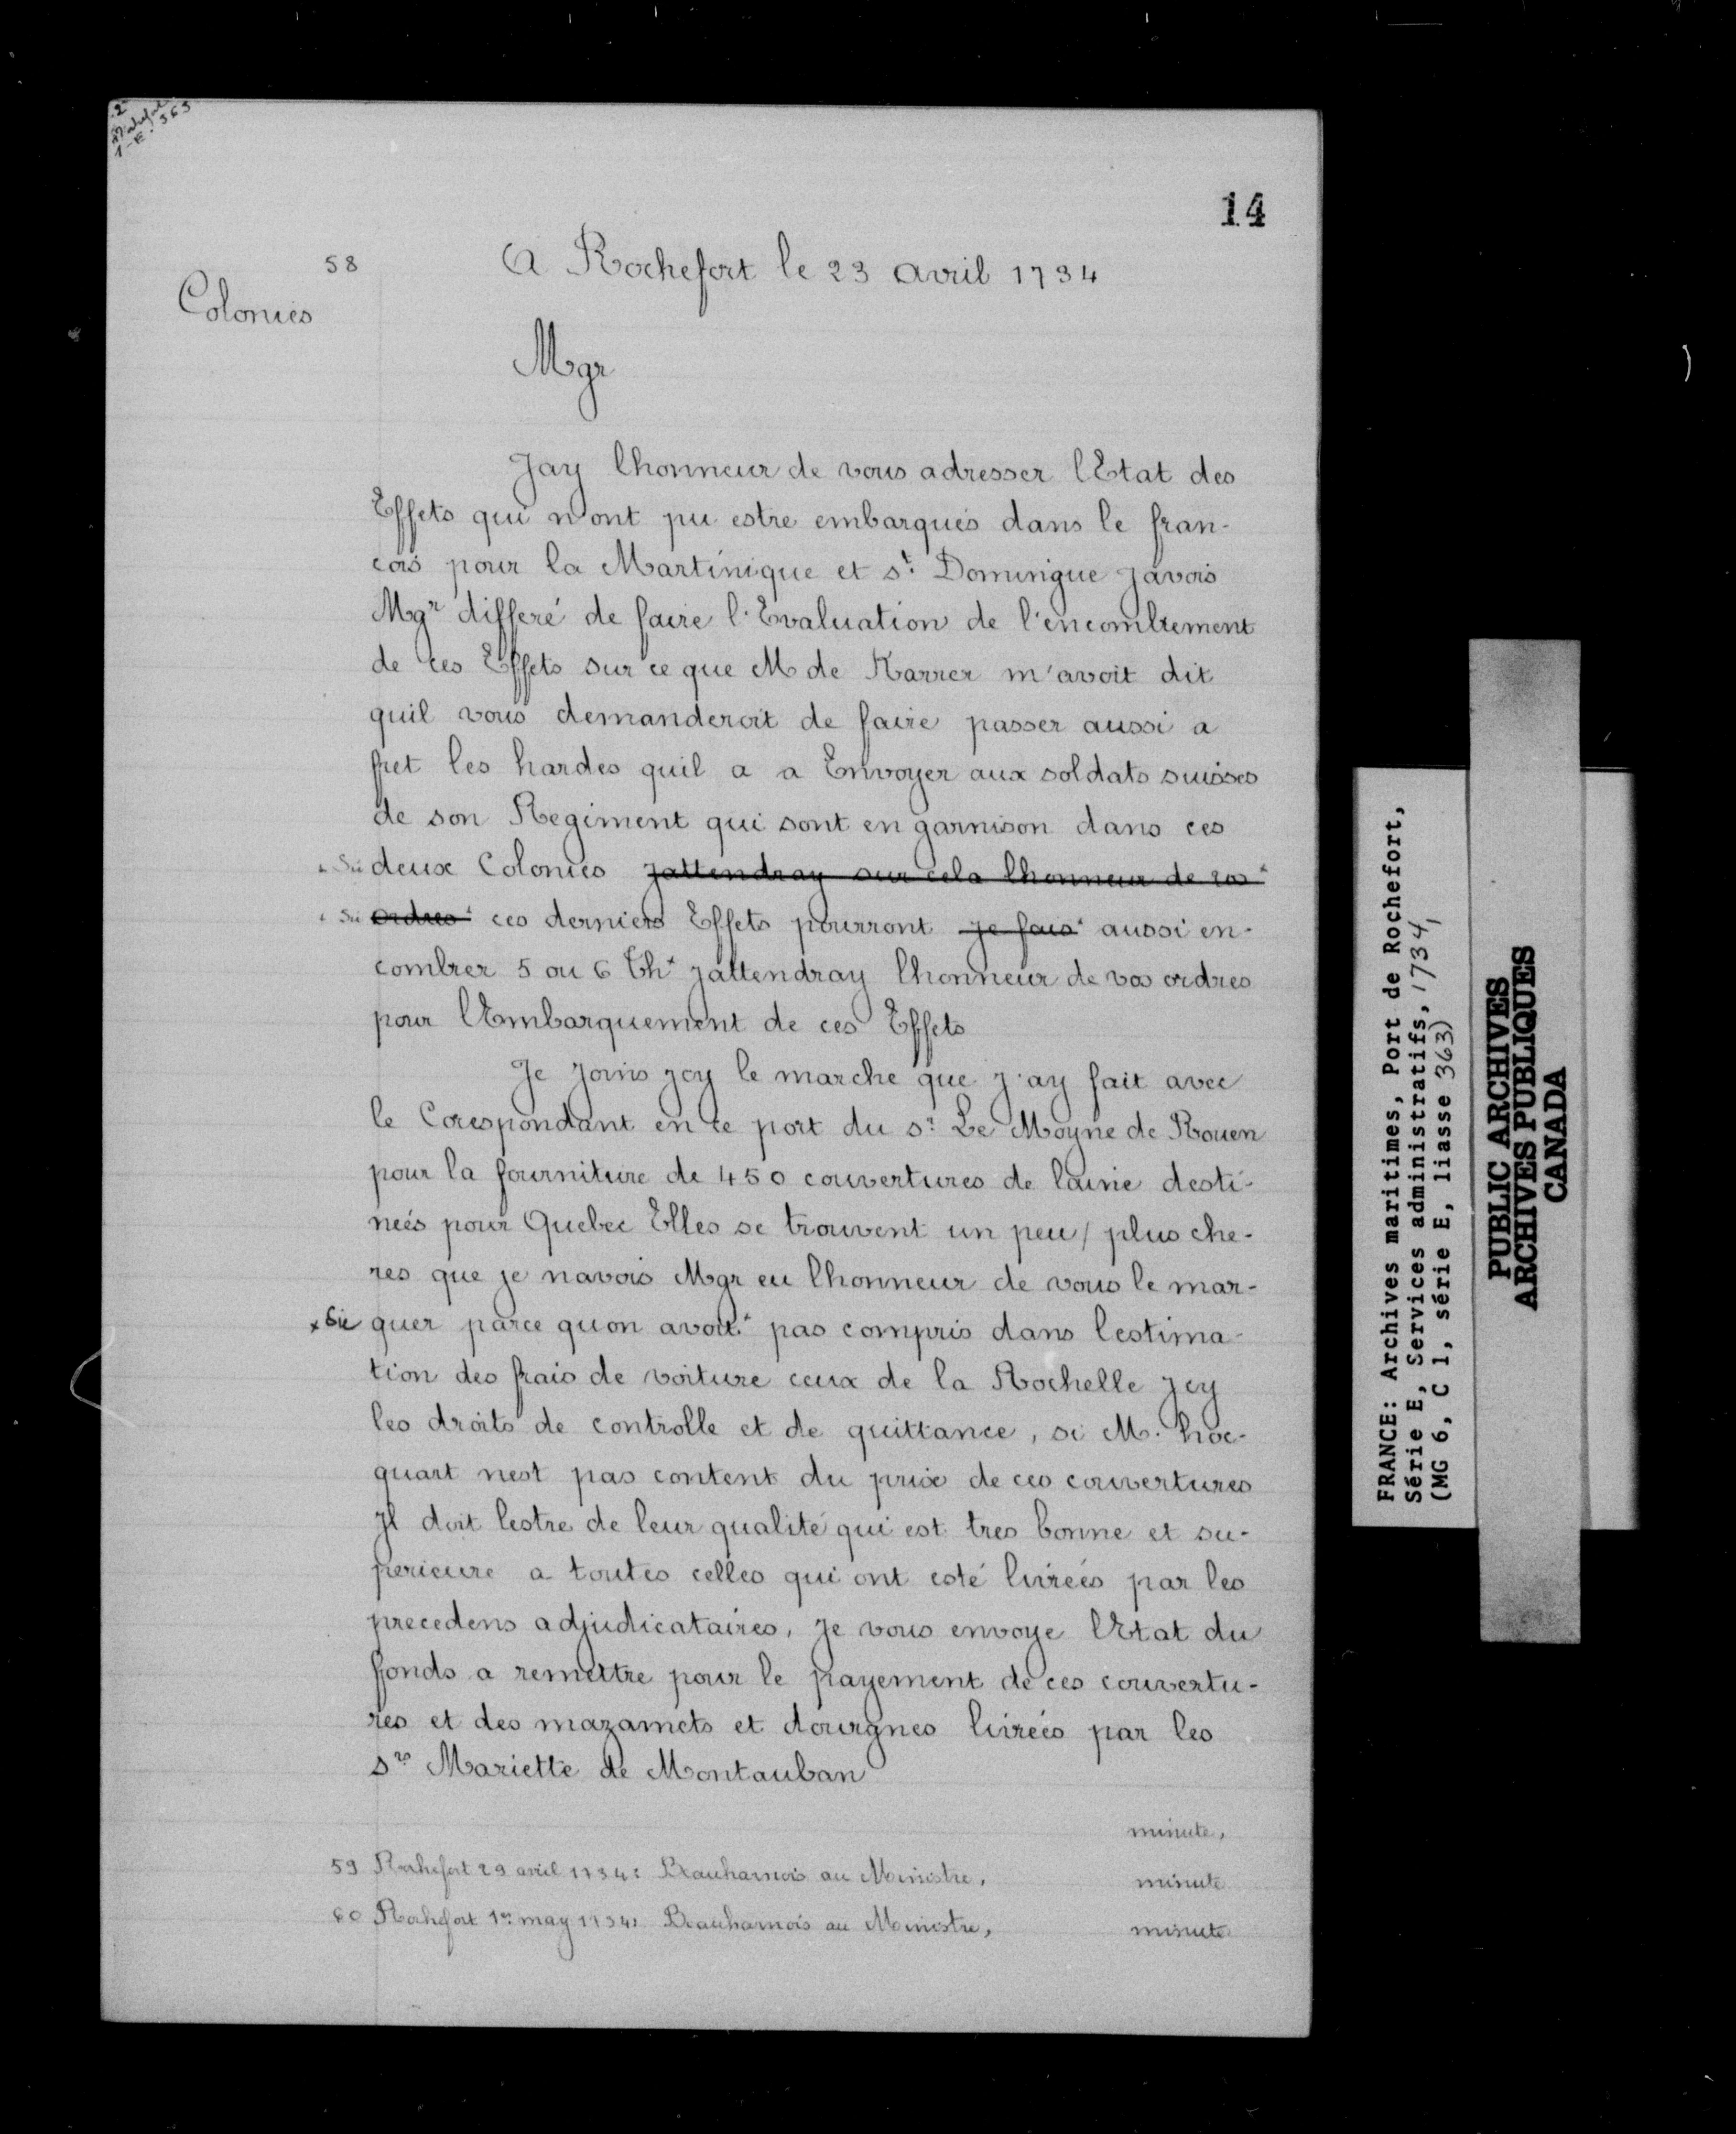 14
58
A Rochefort le 23 avril 1734
Colonies
Mgr
Jay lhonneur de vous adresser lEtat des
Effets qui n'ont pu estre embarqués dans le fran-
cois pour la Martinique et st Domingue javois
Mgr differé de faire l'Evaluation de l'encombrement
de ces Effets sur ce que M de Karrer m'avoit dit
quil vous demanderoit de faire passer aussi a
fret les hardes quil a a Envoyer aux soldats suisses
de son Regiment qui sont en garnison dans ces
+ Sic deux Colonies jattendray sur cela lhonneur de vos+
+ Sic ordres+ ces derniers Effets pourront je fais+ aussi en-
combrer 5 ou 6 thx jattendray lhonneur de vos ordres
pour lEmbarquement de ces Effets
Je joins jcy le marche que j'ay fait avec
le Corespondant en ce port du sr Le Moyne de Rouen
pour la fourniture de 450 couvertures de laine desti-
neés pour Quebec Elles se trouvent un peu/ plus che-
res que je navois Mgr eu lhonneur de vous le mar-
x Sic quer parce quon avoit+ pas compris dans lestima-
tion des frais de voiture ceux de la Rochelle jcy
les droits de controlle et de quittance, si M. hoc-
quart nest pas content du prix de ces couvertures
Jl doit lestre de leur qualité qui est tres bonne et su-
perieure a toutes celles qui ont esté livreés par les
precedens adjudicataires, je vous envoye lEtat du
fonds a remettre pour le payement de ces couvertu-
res et des mazamets et dourgnes livreés par les
srs Mariette de Montauban
minute,
59 Rochefort 29 avril 1734: Beauharnois au Ministre, minute
60 Rochefort 1er may 1734: Beauharnois au Ministre, minute
FRANCE: Archives maritimes, Port de Rochefort,
Série E, Services administratifs, 1734,
(MG 6, C 1, série E, liasse 363)
PUBLIC ARCHIVES
ARCHIVES PUBLIQUES
CANADA